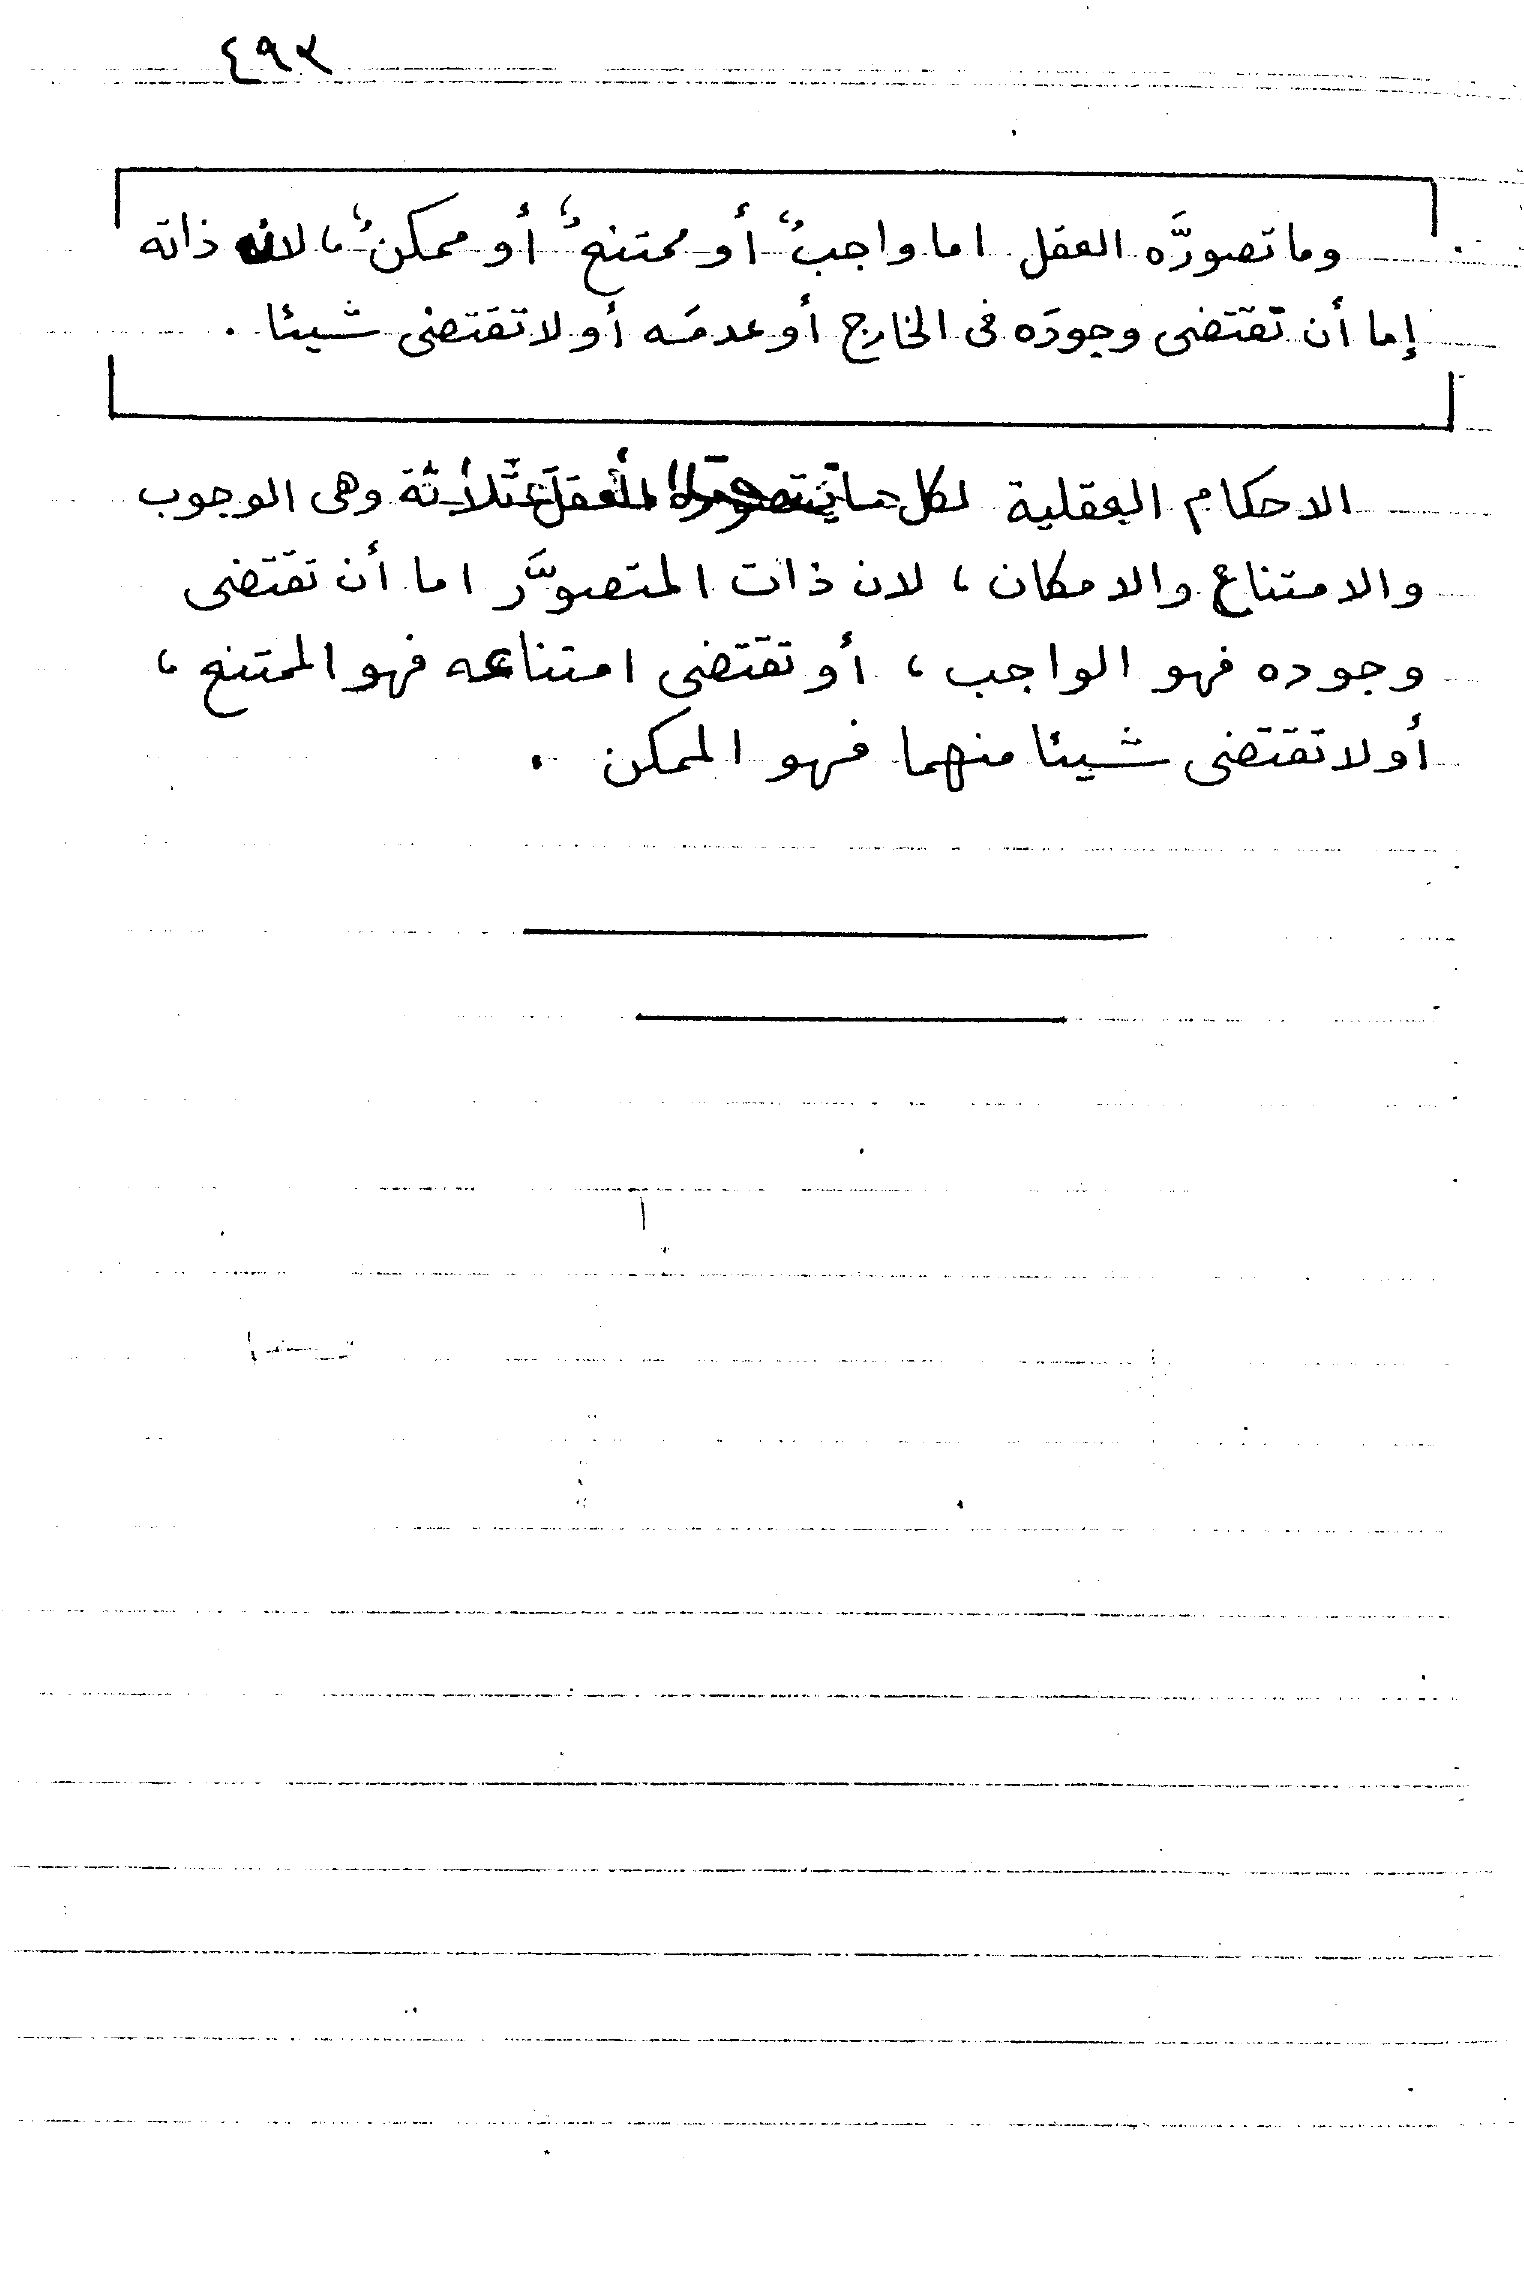 ٤٩٢
وما تصورَّه العقل اما واجبٌ، أو ممتنعٌ، أو ممكنٌ، لان ذاته
إما أن تقتضى وجودَه فى الخارج أو عدمَه أو لا تقتضى شيئا .
الاحكام العقلية لكل ما العقل ثلاثة وهى الوجوب
والامتناع والامكان ، لان ذات المتصوَّر اما أن تقتضى
وجوده فهو الواجب ، أو تقتضى امتناعه فهو الممتنع ،
أو لا تقتضى شيئا منهما فهو الممكن .